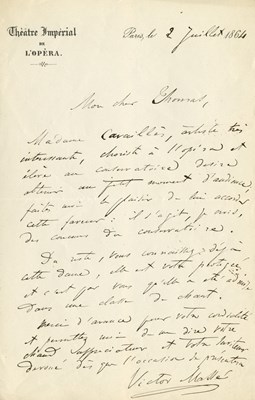 Théâtre Impérial
DE
L'OPÉRA.
Paris, le 2 Juillet 1864
Mon cher Thomas,
Madame Cavaillès, artiste très
intéressante, choriste à l'opéra et
élève au conservatoire desire
obtenir un petit moment d'audience,
faites moi le plaisir de lui accorder
cette faveur : il s'agit, je crois,
des concours du conservatoire.
Du reste, vous connaissez déjà
cette dame, elle est votre protégée
et c'est par vous qu'elle a été admise
dans une classe de chant.
Merci d'avance pour votre cordialité
et permettez moi de me dire votre
chaud appréciateur et votre serviteur
dévoué dès que l'occasion se présentera
Victor Massé